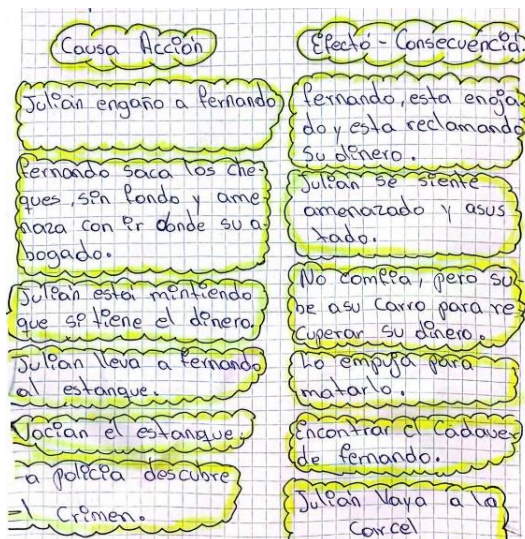 Causa Acción
Julián engaño a fernando
fernando saca los che-
ques, sin fondo y ame-
naza con ir donde su a-
bogado.
Julián está mintiendo
que si tiene el dinero.
Julián lleva a fernando
al estanque.
Vacían el estanque.
a policía descubre
el Crimen.
Efecto - Consecuencia
fernando, esta enoja-
do y esta reclamando
su dinero.
Julián se siente
amenazado y asus
tado.
No comfía, pero su
be asu Carro para re
cuperar su dinero.
Lo empuja para
matarlo.
Encontrar el Cádaver
de fernando.
Julián Vaya a la
Carcel